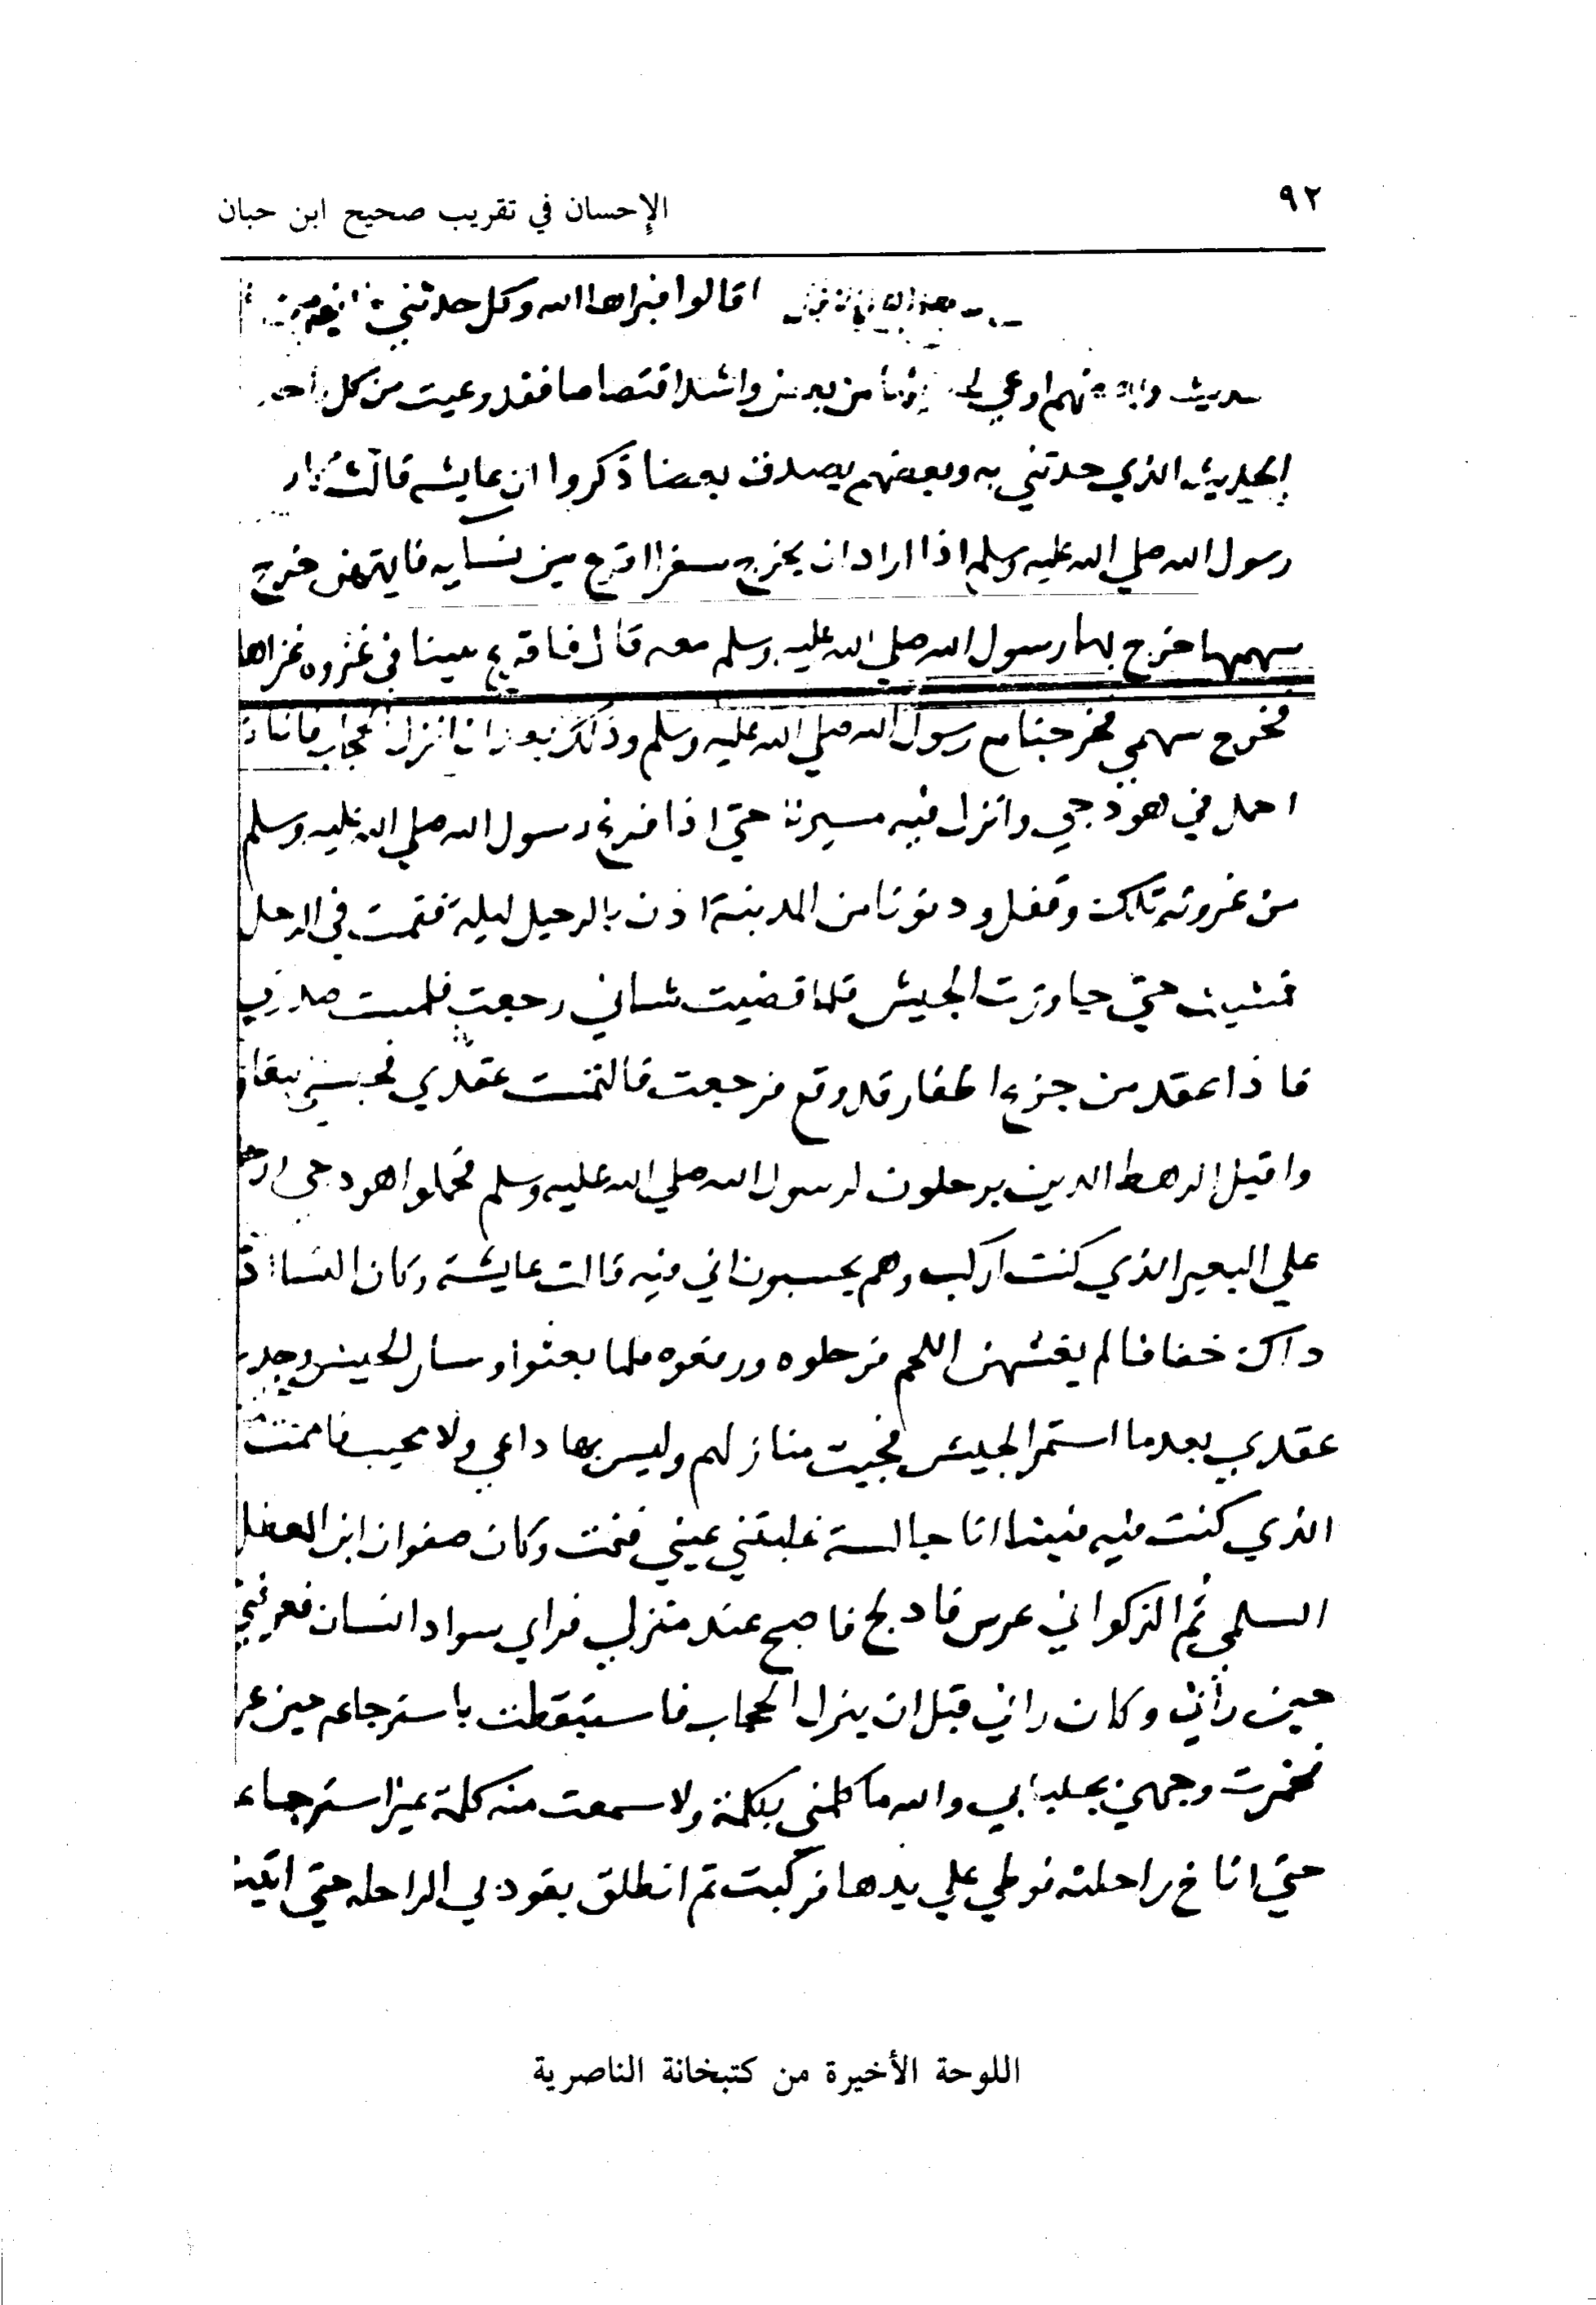 ٩٢
الإحسان في تقريب صحيح ابن حبان
قالوا فبراها الله وكل حدثني
حديث اوعي من بعض واشد اقتصاصا فقد وعيت من كل
الحديث الذي حدثني به وبعضهم يصدق بعضا ذكروا ان عايشه قالت
رسول الله صلي الله عليه وسلم اذا اراد ان يخرج سفرا اقرع بين نسايه فايتهن خرج
سهمها خرج بها رسول الله صلي الله عليه وسلم معه قال فاقرع بيننا في غزوه غزاها
فخرج سهمي فخرجنا مع رسول الله صلي الله عليه وسلم وذلك بعد ان انزل الحجاب فانا
احمل في هودجي وانزل فيه مسيرنا حتي اذا فرغ رسول الله صلي الله عليه وسلم
من غزوته تلك وقفل ودنونا من المدينة اذن بالرحيل ليلة فقمت في الرحل
فمشيت حتي جاوزت الجيش فلما قضيت شاني رجعت فلمست صدري
فاذا عقد من جزع اظفار قد وقع فرجعت فالتمست عقدي فحبسني
واقبل الرهط الدين يرحلون لرسول الله صلي الله عليه وسلم فحملوا هودجي
علي البعير الذي كنت اركب وهم يحسبون اني فيه قالت عايشة وكان النسا
داك خفافا لم يغشهن اللحم فرحلوه ورفعوه فلما بعثوا وسار الجيش وجدت
عقدي بعدما استمر الجيش فجيت منازلهم وليس بها داعي ولا مجيب فاممت
الذي كنت فيه فبينا انا جالسة غلبتني عيني فنمت وكان صفوان ابن المعطل
السلمي ثم الذكواني عرس فادلج فاصبح عند منزلي فراي سواد انسان فعرفني
حين رأني وكان راني قبل ان ينزل الحجاب فاستيقظت باسترجاعه حين
فخمرت وجهي بجلبابي والله ما كلمني بكلمة ولا سمعت منه كلمة غير استرجاعه
حتي اناخ راحلته فوطي علي يدها فركبت ثم انطلق يقود بي الراحله حتي اتينا
اللوحة الأخيرة من كتبخانة الناصرية